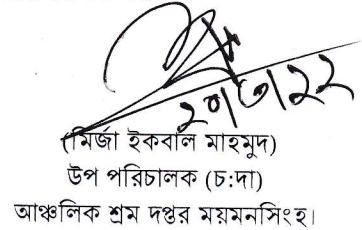 ২৭/৩/২২
(মির্জা ইকবাল মাহমুদ)
উপ পরিচালক (চ:দা)
আঞ্চলিক শ্রম দপ্তর ময়মনসিংহ।